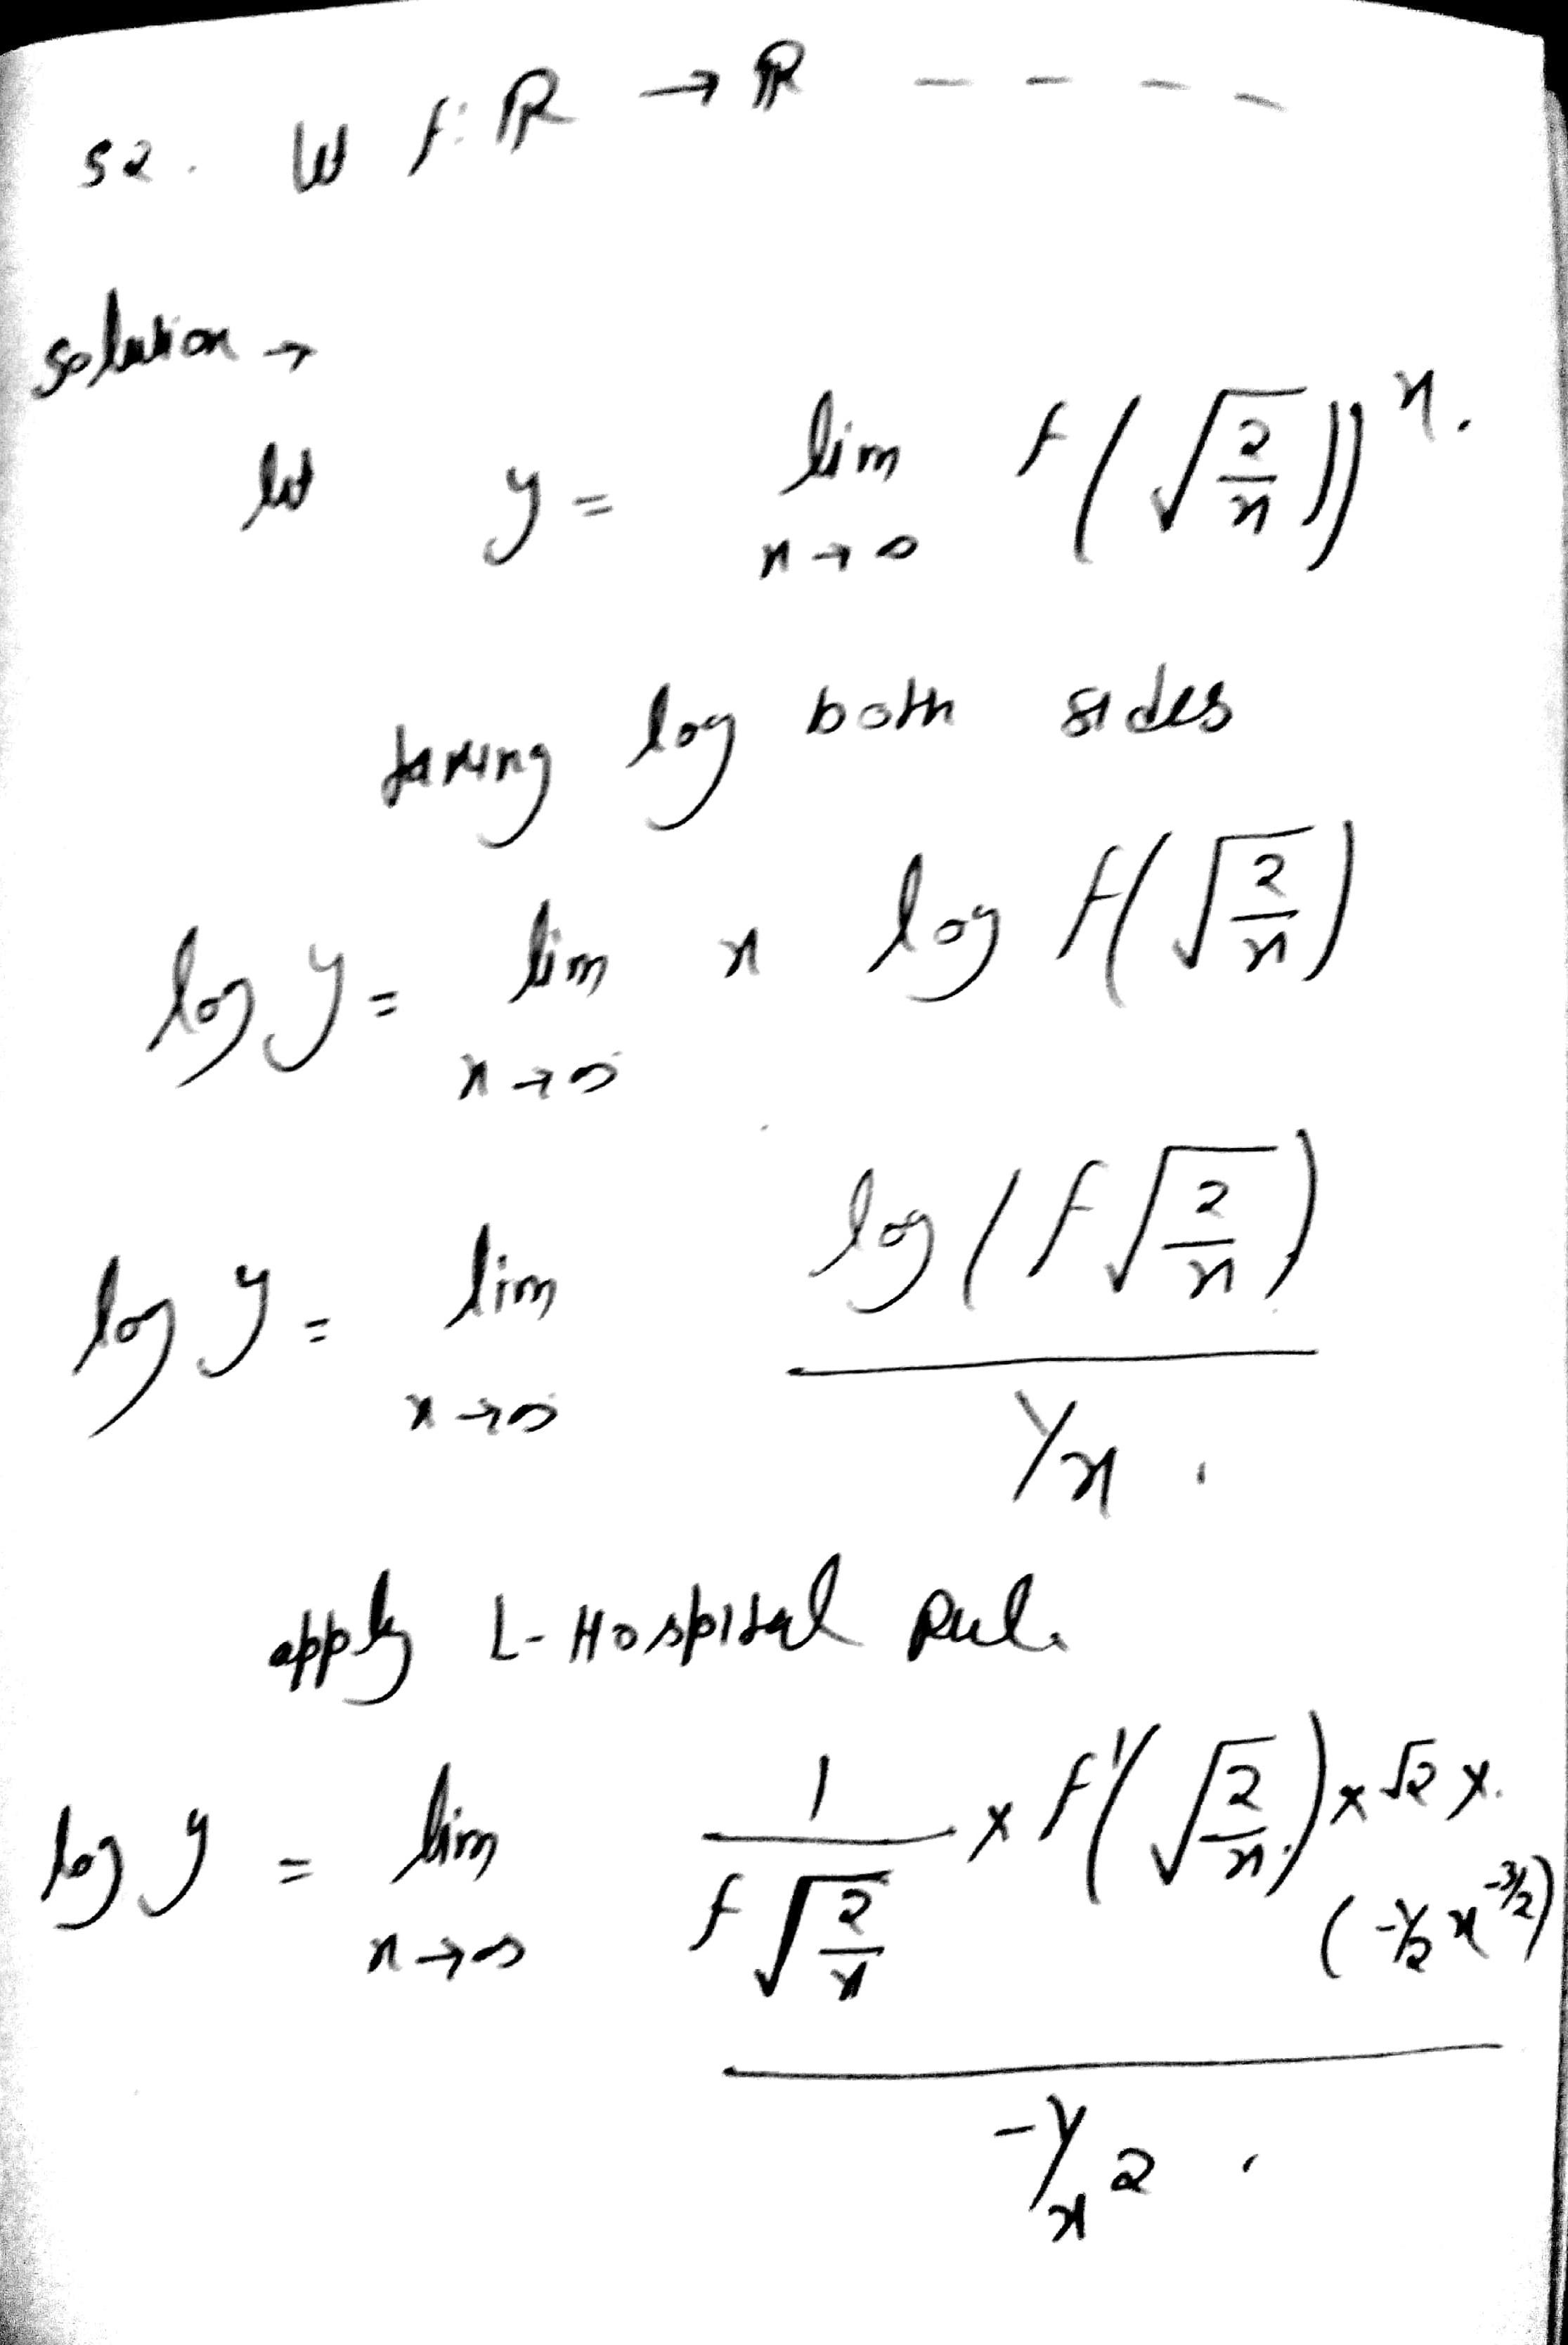 52. Let f: ℝ → ℝ - - - -
solution →
let y = lim x→∞ f(√(2/x)))^x.
taking log both sides
log y = lim x→∞ x log f(√(2/x))
log y = lim x→∞ log(f√(2/x)) / 1/x.
apply L-Hospital Rule
log y = lim x→∞ 1/(f√(2/x)) × f'(√(2/x)) × √2 × (-1/2 x^(-3/2)) / -1/x^2.